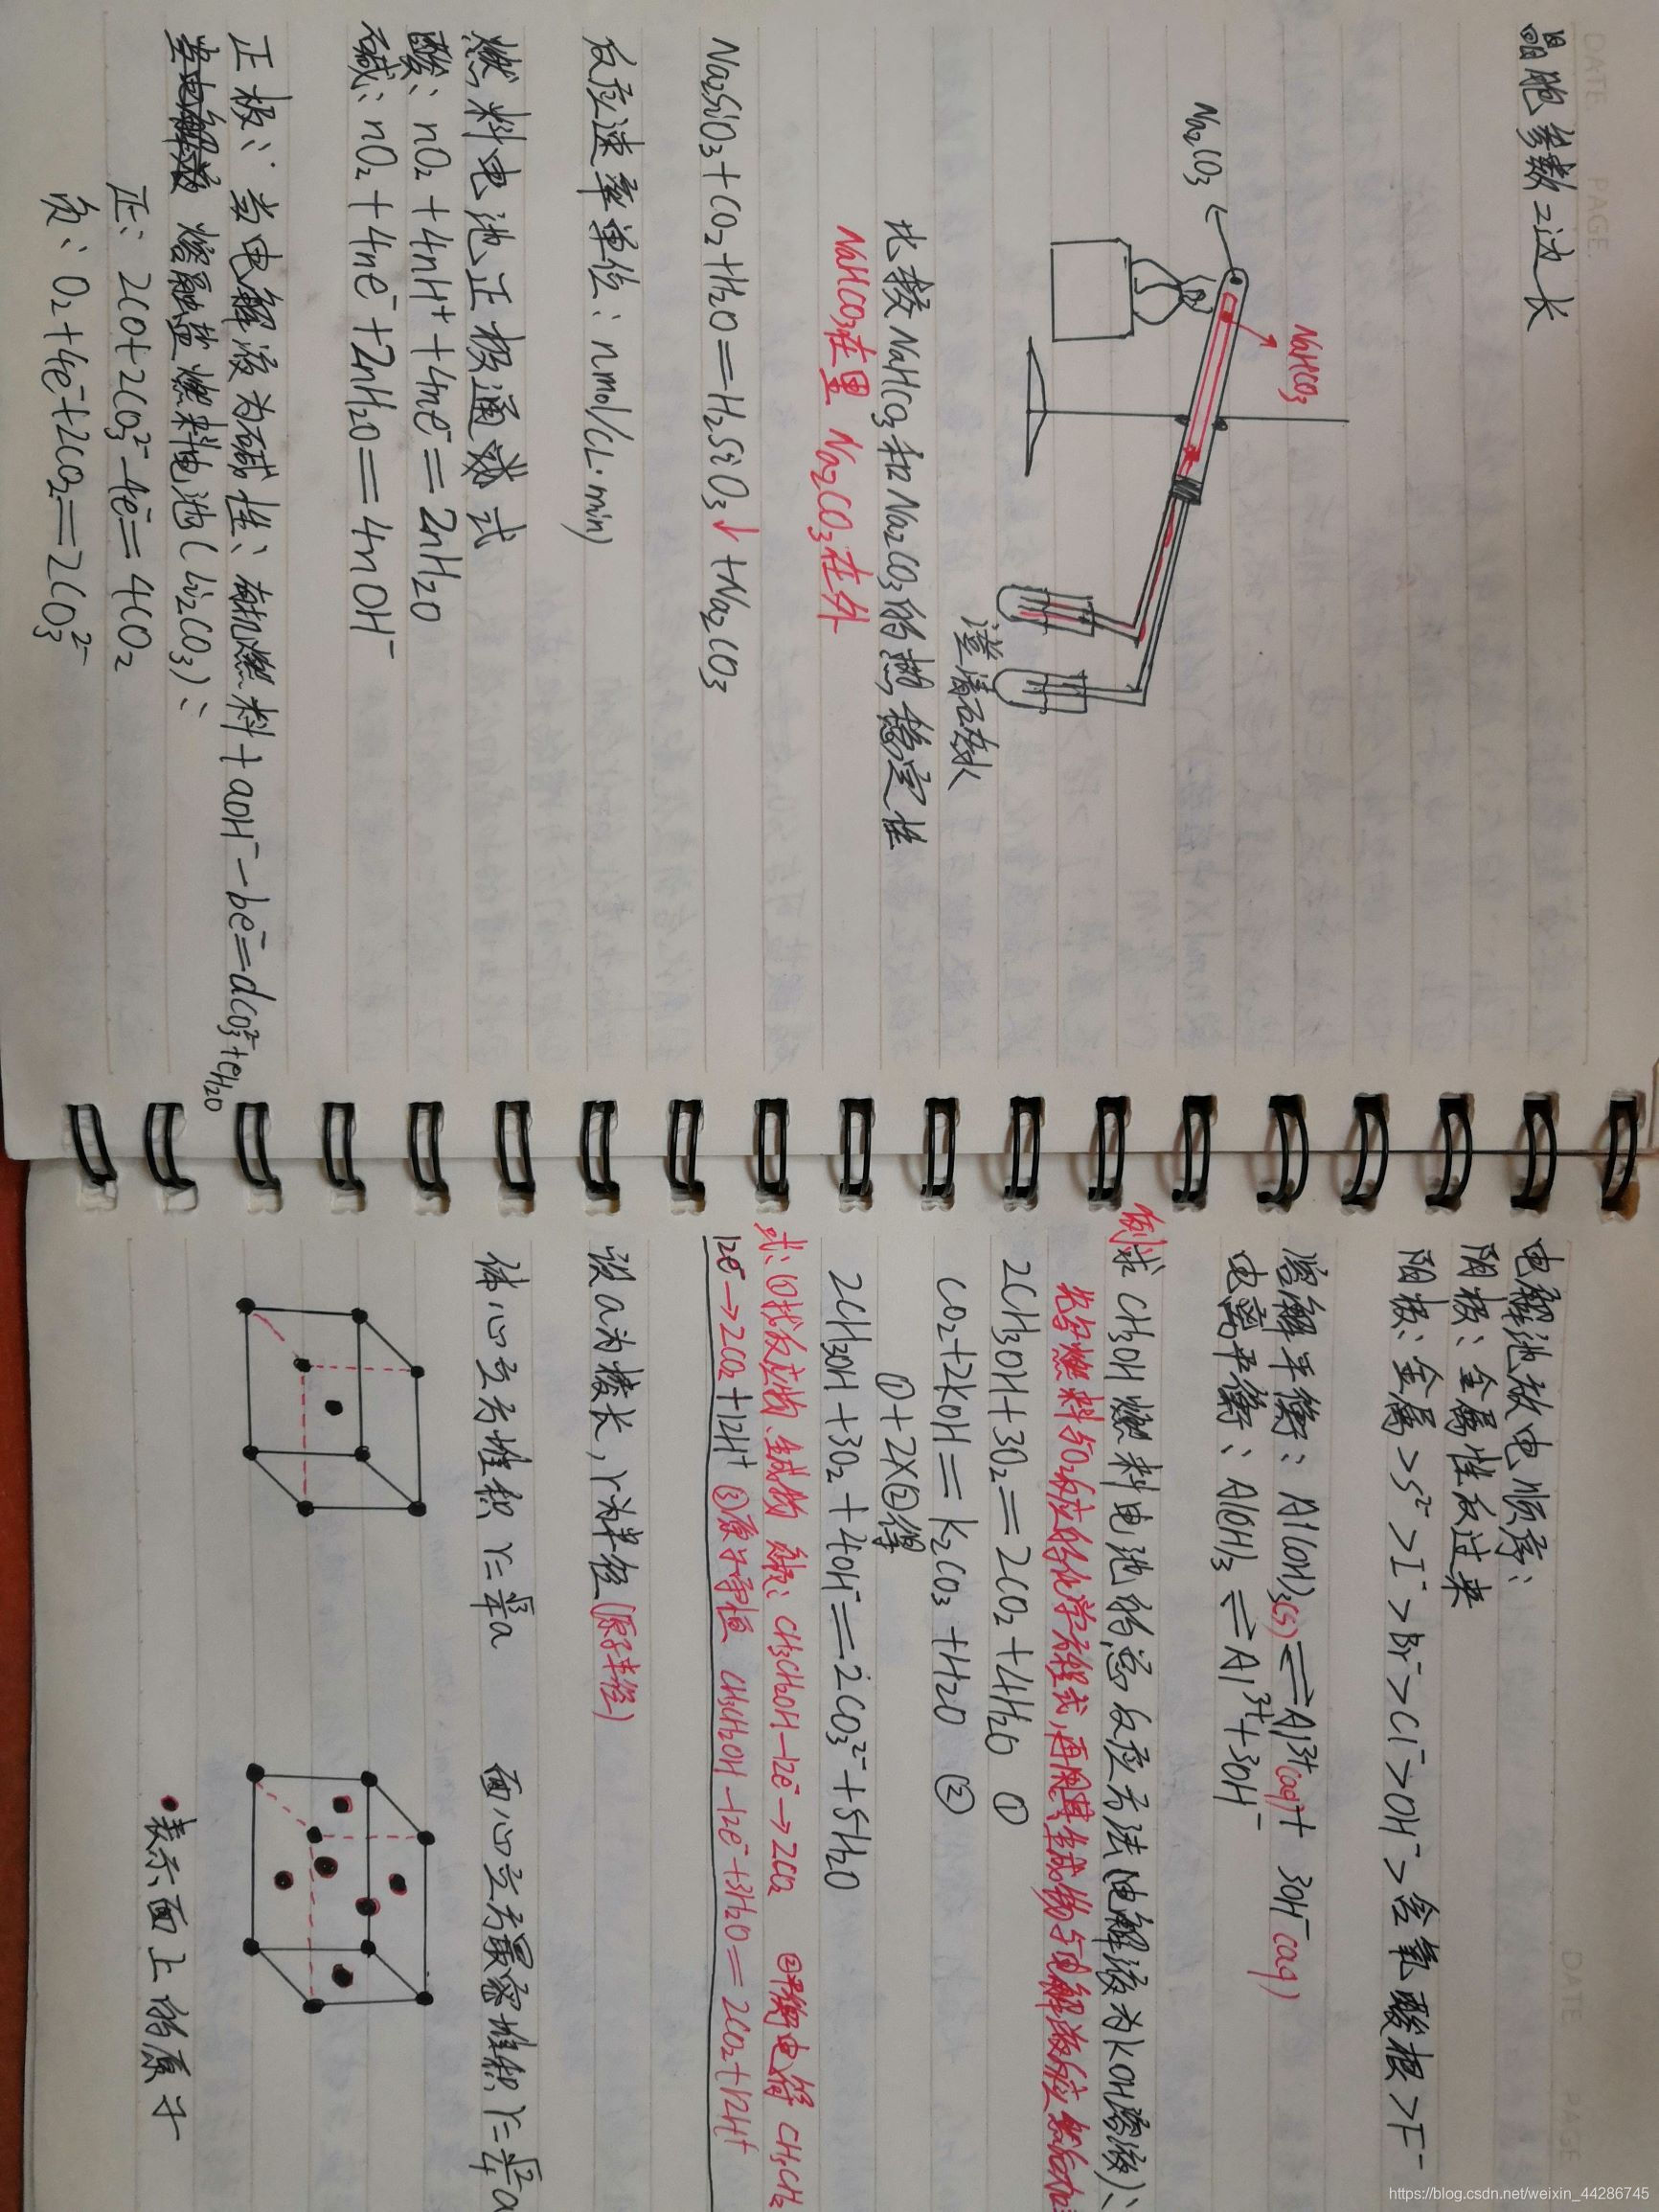 DATE PAGE
晶胞参数=边长
NaHCO3
Na2CO3
澄清石灰水
比较NaHCO3和Na2CO3的热稳定性
NaHCO3在里 Na2CO3在外
Na2SiO3+CO2+H2O=H2SiO3↓+Na2CO3
反应速率单位:nmol/(L·min)
燃料电池正极通式
酸:nO2+4nH⁺+4ne⁻=2nH2O
碱:nO2+4ne⁻+2nH2O=4nOH⁻
正极:当电解液为碱性:有机燃料+aOH⁻-be⁻=dCO3²⁻+eH2O
熔融盐燃料电池(Li2CO3):
正:2CO+2CO3²⁻-4e⁻=4CO2
负:O2+4e⁻+2CO2=2CO3²⁻
DATE PAGE
电解池放电顺序:
阴极:金属性反过来
阳极:金属>S²⁻>I⁻>Br⁻>Cl⁻>OH⁻>含氧酸根>F⁻
溶解平衡:Al(OH)3(s)⇌Al³⁺(aq)+3OH⁻(aq)
电离平衡:Al(OH)3⇌Al³⁺+3OH⁻
例求CH3OH燃料电池的总反应方法(电解液为KOH溶液):
先写燃料与O2反应的化学方程式,再用其生成物与电解液反应
2CH3OH+3O2=2CO2+4H2O ①
CO2+2KOH=K2CO3+H2O ②
①+2×②得
2CH3OH+3O2+4OH⁻=2CO3²⁻+6H2O
式:①找反应物、生成物 负极:CH3CH2OH-12e⁻→2CO2 ②平衡电荷 CH3CH2
12e⁻→2CO2+12H⁺ ③原子守恒 CH3CH2OH-12e⁻+3H2O=2CO2+12H⁺
设a为棱长,r为半径(原子半径)
体心立方堆积 r=√3/4a 面心立方最密堆积 r=√2/4a
•表示面上的原子
https://blog.csdn.net/weixin_44286745